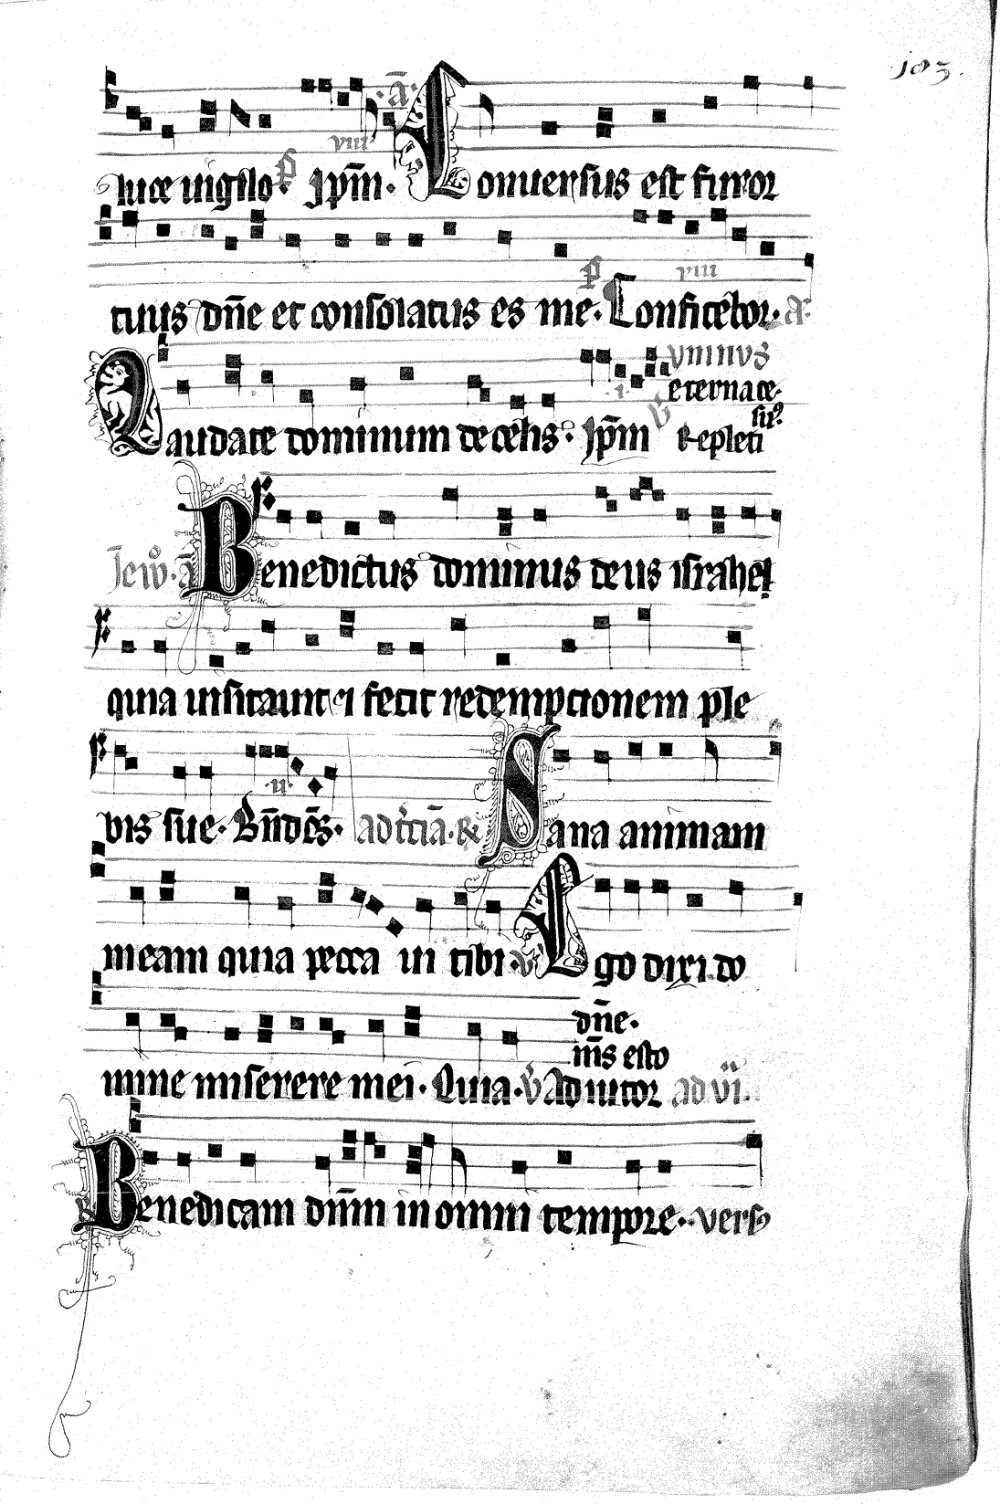 103.
·a̅·
viii
luce uigilo· p̅s ip̅m· Conuersus est furor
tuus dn̅e et consolatus es me· p̅s Confiteбor· a̅·
viii
Laudate dominum de celis· ip̅m ymnus
eterna ce-
.i. li9
v̅ Repleti su9
In ev̅· a̅ Benedictus dominus deus israhel
quia uisitauit et fecit redemptionem ple
bis sue· Bn̅dc̅s· ad t̅ciā· R̅ Sana animam
.ii.
meam quia pecca ui tibi· v̅ Ego dixi do
mine miserere mei· Quia· v̅ Adiutor ad vi.
dn̅e·
m̅s esto
R̅ Benedicam dn̅m in omni tempore·· vers9